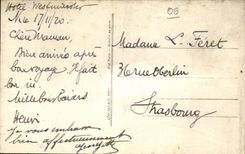 Hotel Westminster
Nice 17/11/20.
Chère Maman,
Bien arrivés après
bon voyage. Il fait
bon ici.
Mille bons baisers
Henri
Je vous embrasse
bien affectueusement
06
Madame L. Feret
3 rue Oberlin
Strasbourg